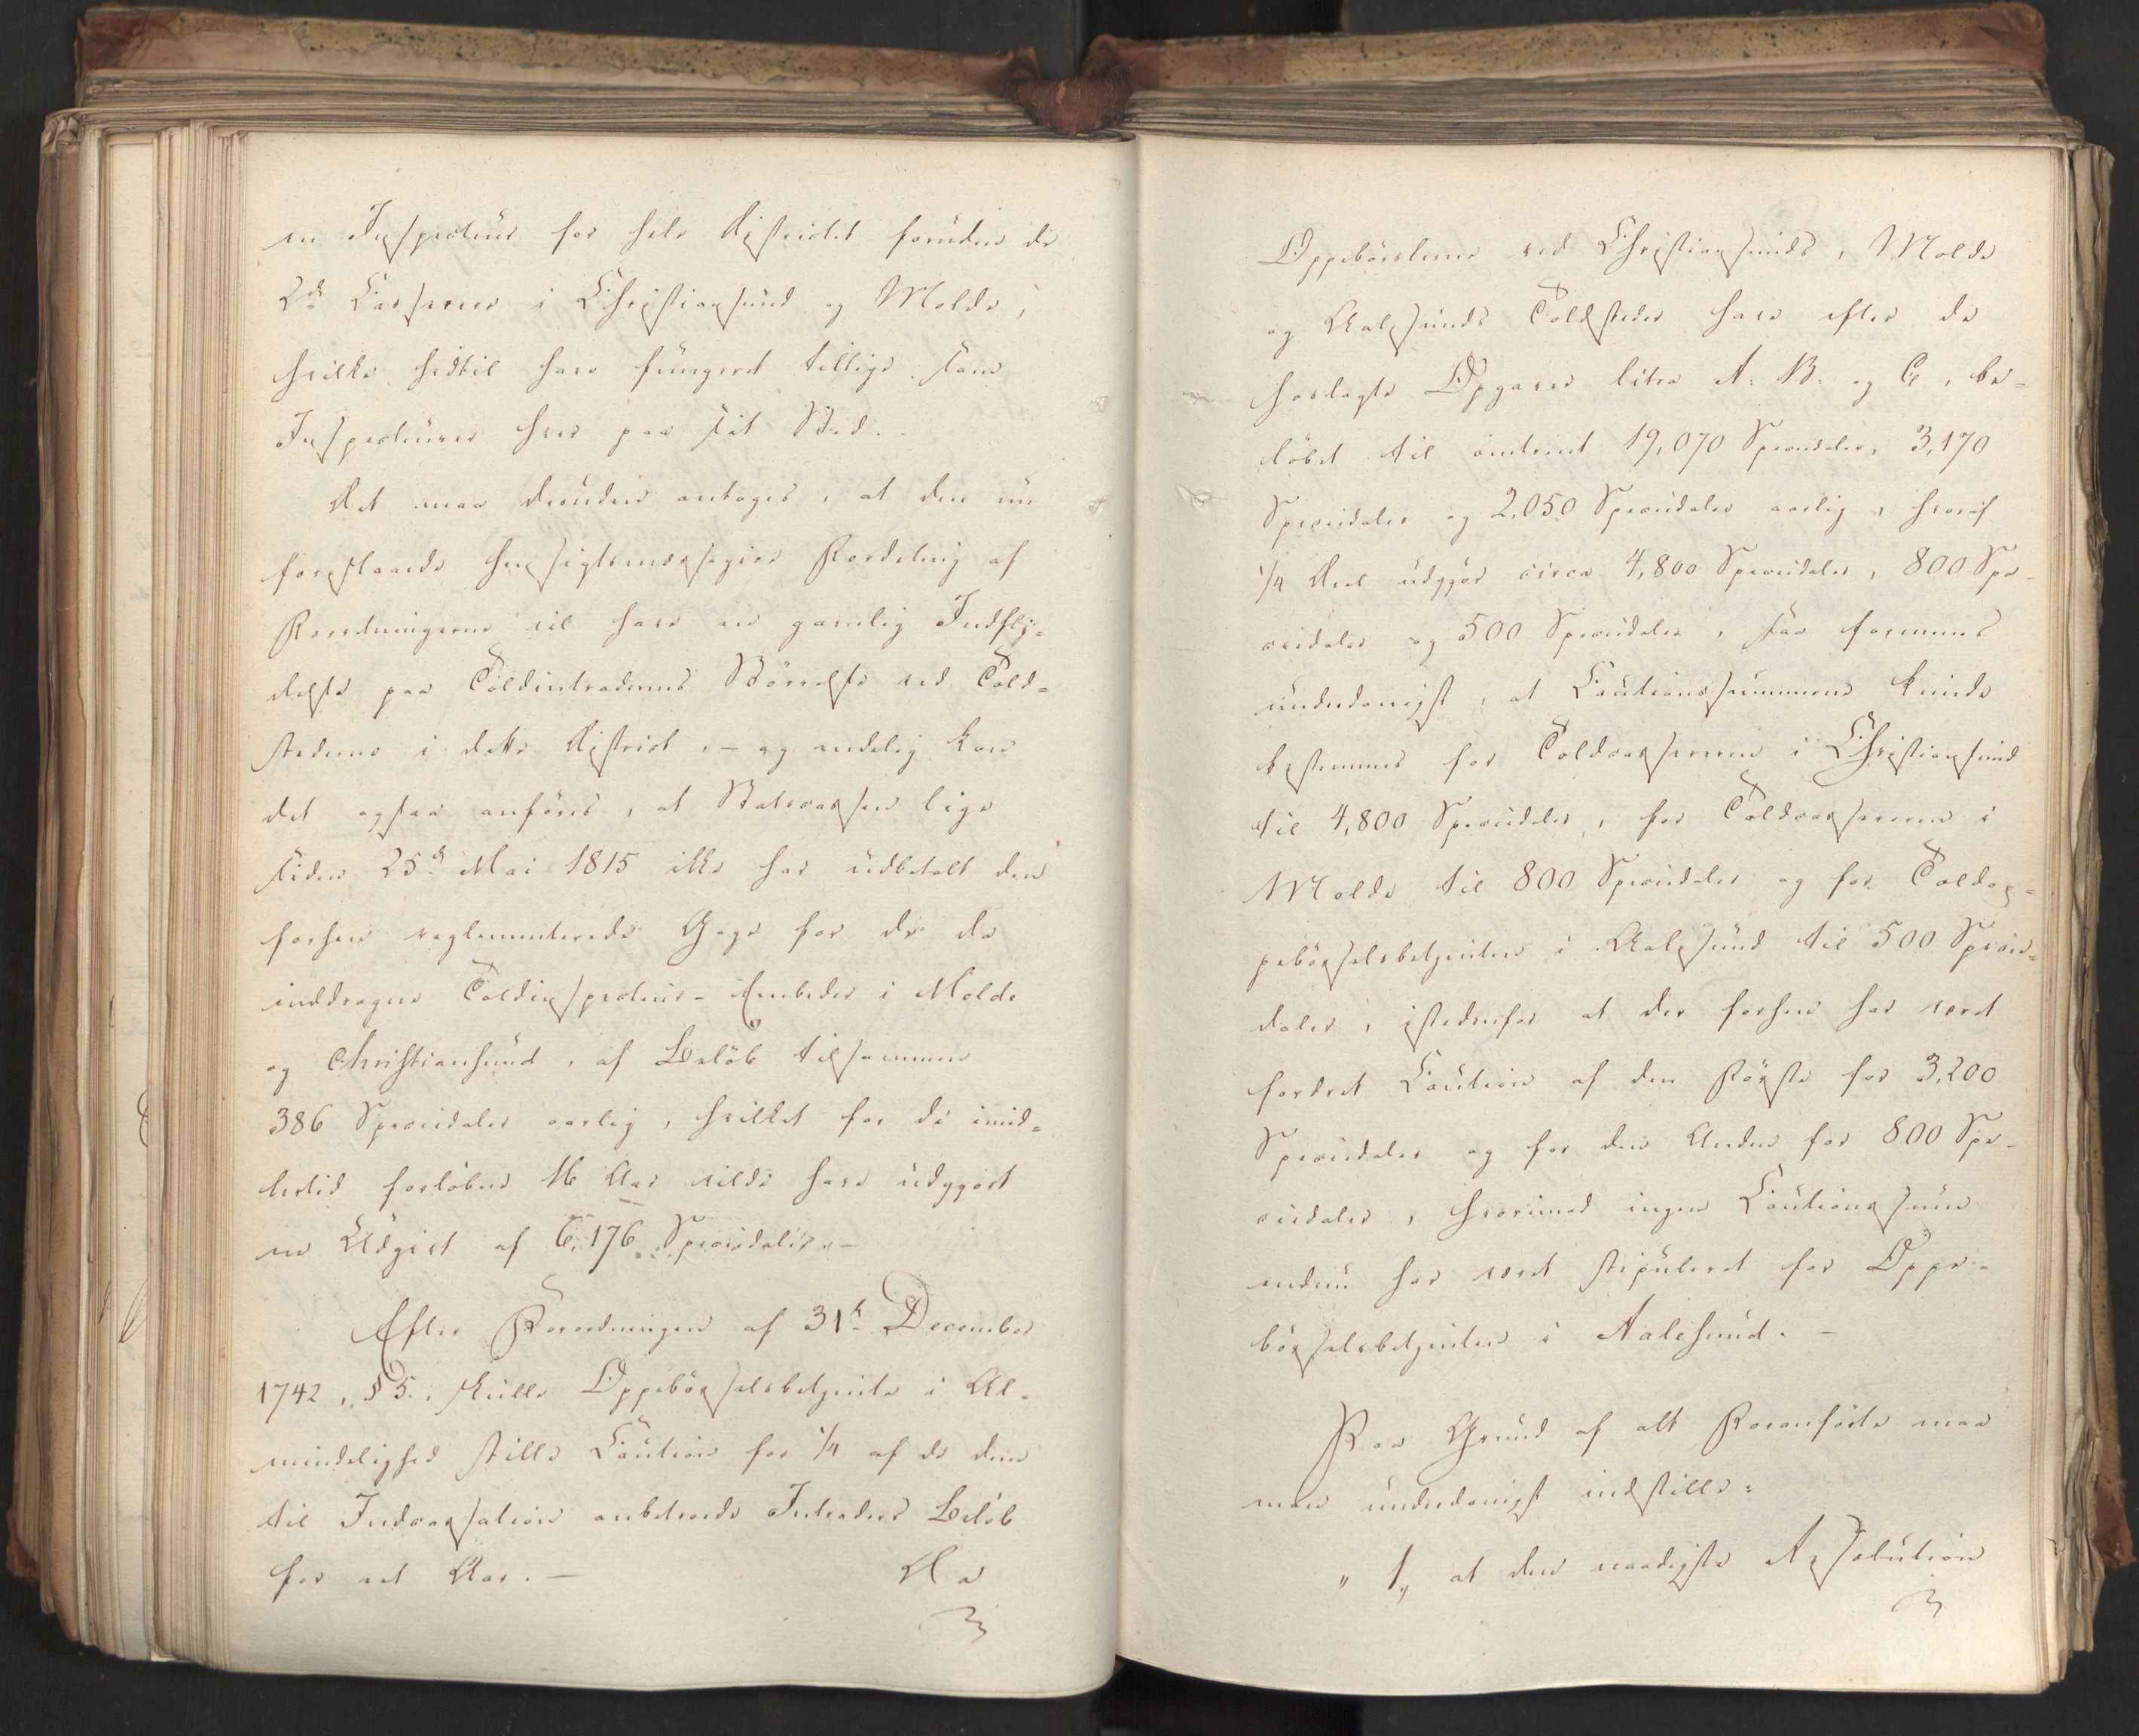 en Inspecteur for hele Districtet foruden de
2de Casserer i Christiansund og Molde,
hvilke hidtil have fungeret tillige som
Inspecteurer hver paa sit Sted.
Det maa desuden antages, at den nu
forestaaende hensigtsmæssigere Fordeling af
Forretningerne vil have en gavnlig Indfly-
delse paa Toldintradernes Størrelse ved Told-
stederne i dette District, – og endelig kan
det ogsaa anføres, at Statscassen lige
siden 25de Mai 1815 ikke har udbetalt den
forhen reglementerede Gage for de da
inddragne Toldinspecteur-Embeder i Molde
og Christiansund, af Beløb tilsammen
386 Speciedaler aarlig, hvilket for de imid-
lertid forløbne 16 Aar vilde have udgjort
en Udgivt af 6,176 Speciedaler. –
Efter Forordningen af 31te December
1742, § 5., skulle Oppebørselsbetjente i Al-
mindelighed stille Caution for 1/4 af de dem
til Indcassation anbetroede Intraders Beløb
for eet Aar. –
Da
Oppebørslerne ved Christiansunds, Molde
og Aalesunds Toldsteder have efter de
hoslagte Opgaver litra A. B. og C, be-
løbet til omtrent 19,070 Speciedaler, 3,170
Speciedaler og 2,050 Speciedaler aarlig, hvoraf
1/4 Deel udgjør circa 4,800 Speciedaler, 800 Spe-
ciedaler og 500 Speciedaler, saa formenes
underdanigst, at Cautionssummerne kunde
bestemmes for Toldcassereren i Christiansund
til 4,800 Speciedaler, for Toldcassereren i
Molde til 800 Speciedaler og for Toldop-
pebørselsbetjenten i Aalesund til 500 Specie-
daler, istedenfor at der forhen har været
fordret Caution af den Første for 3,200
Speciedaler og for den Anden for 800 Spe-
ciedaler, hvorimod ingen Cautionssum
endnu har været stipuleret for Oppe-
børselsbetjenten i Aalesund. –
Paa Grund af alt Foranførte maa
man underdanigst indstille:
" 1, at den naadigste Resolution